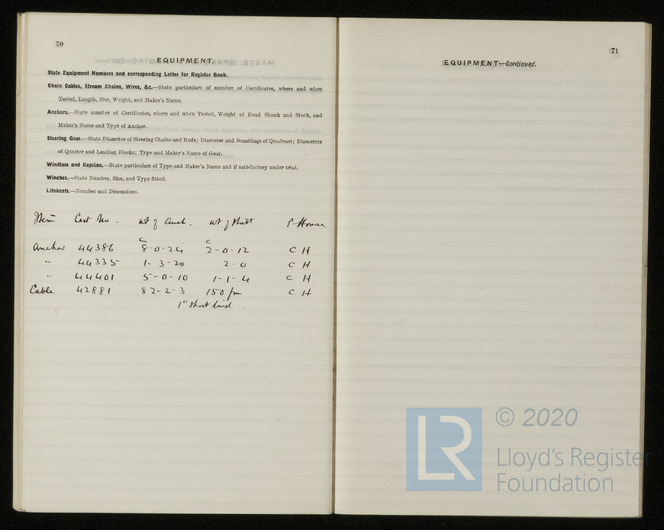 70
EQUIPMENT.
State Equipment Numbers and corresponding Letter for Register Book.
Chain Cables, Stream Chains, Wires, &c.—State particulars of number of Certificates, where and when
Tested, Length, Size, Weight, and Maker's Name.
Anchors.—State number of Certificates, where and when Tested, Weight of Head Shank and Stock, and
Maker's Name and Type of Anchor.
Steering Gear.—State Diameter of Steering Chains and Rods; Diameter and Scantlings of Quadrant; Diameters
of Quarter and Leading Blocks; Type and Maker's Name of Gear.
Windlass and Capstan.—State particulars of Type and Maker's Name and if satisfactory under trial.
Winches.—State Number, Size, and Type fitted.
Lifeboats.—Number and Dimensions.
Item Cert No. wt of Anch. wt of P. House
c c
Anchor 44386 8-0-24 2-0-12 C H
" 44335 1-3-20 2-0 C H
" 44401 5-0-10 1-1-4 C H
Cable 42881 82-2-3 150 fm C H
1" short
71
EQUIPMENT—Continued.
© 2020
LR
Lloyd's Register
Foundation